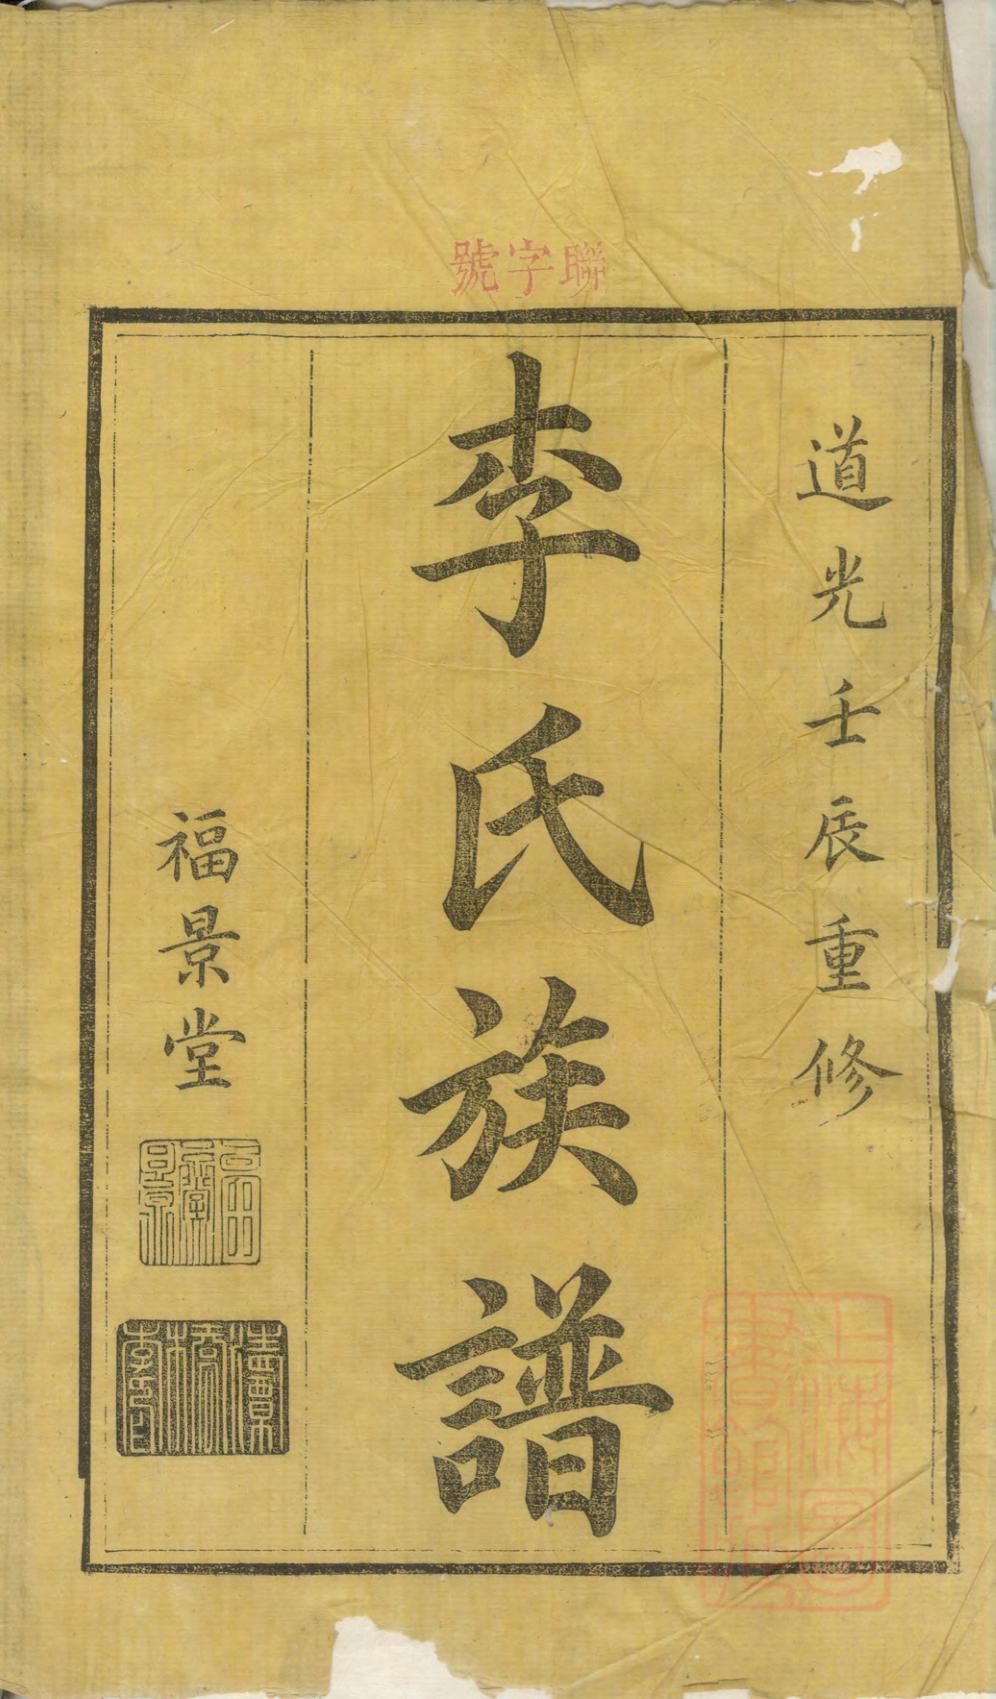 聯字號
道光壬辰重修
李氏族譜
福景堂
福景堂
上海圖書館藏